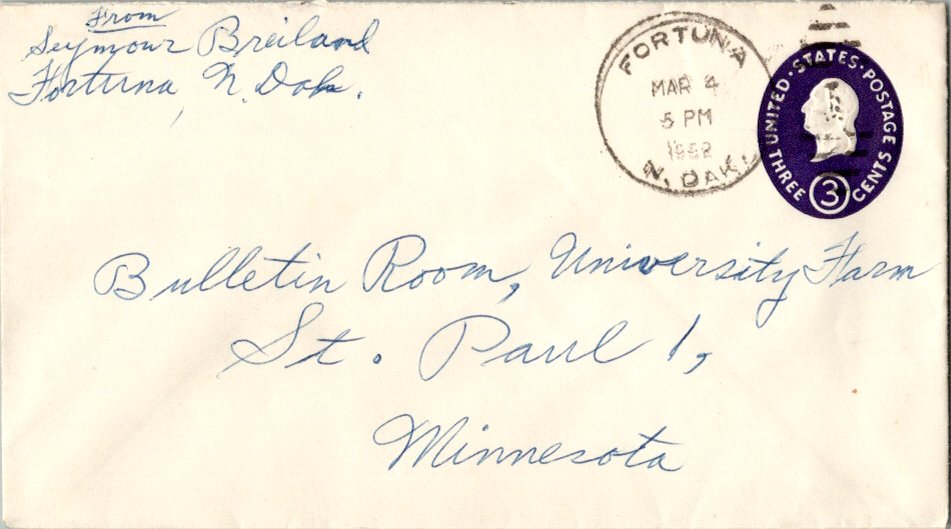 From
Seymour Breiland
Fortuna, N. Dak.
FORTUNA
MAR 4
5 PM
1952
N. DAK.
UNITED·STATES·POSTAGE
THREE 3 CENTS
Bulletin Room, University Farm
St. Paul 1,
Minnesota